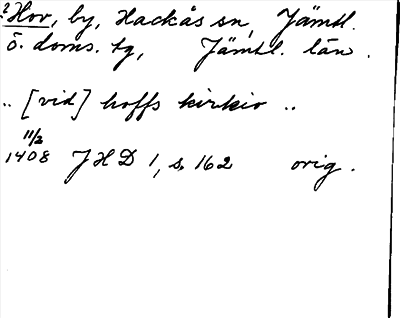 ? Hov, by, Hackås sn, Jämtl.
ö. doms. tg, Jämtl. län.
.. [vid] hoffs kirkio ..
11/2
1408 JHD 1, s. 162 orig.